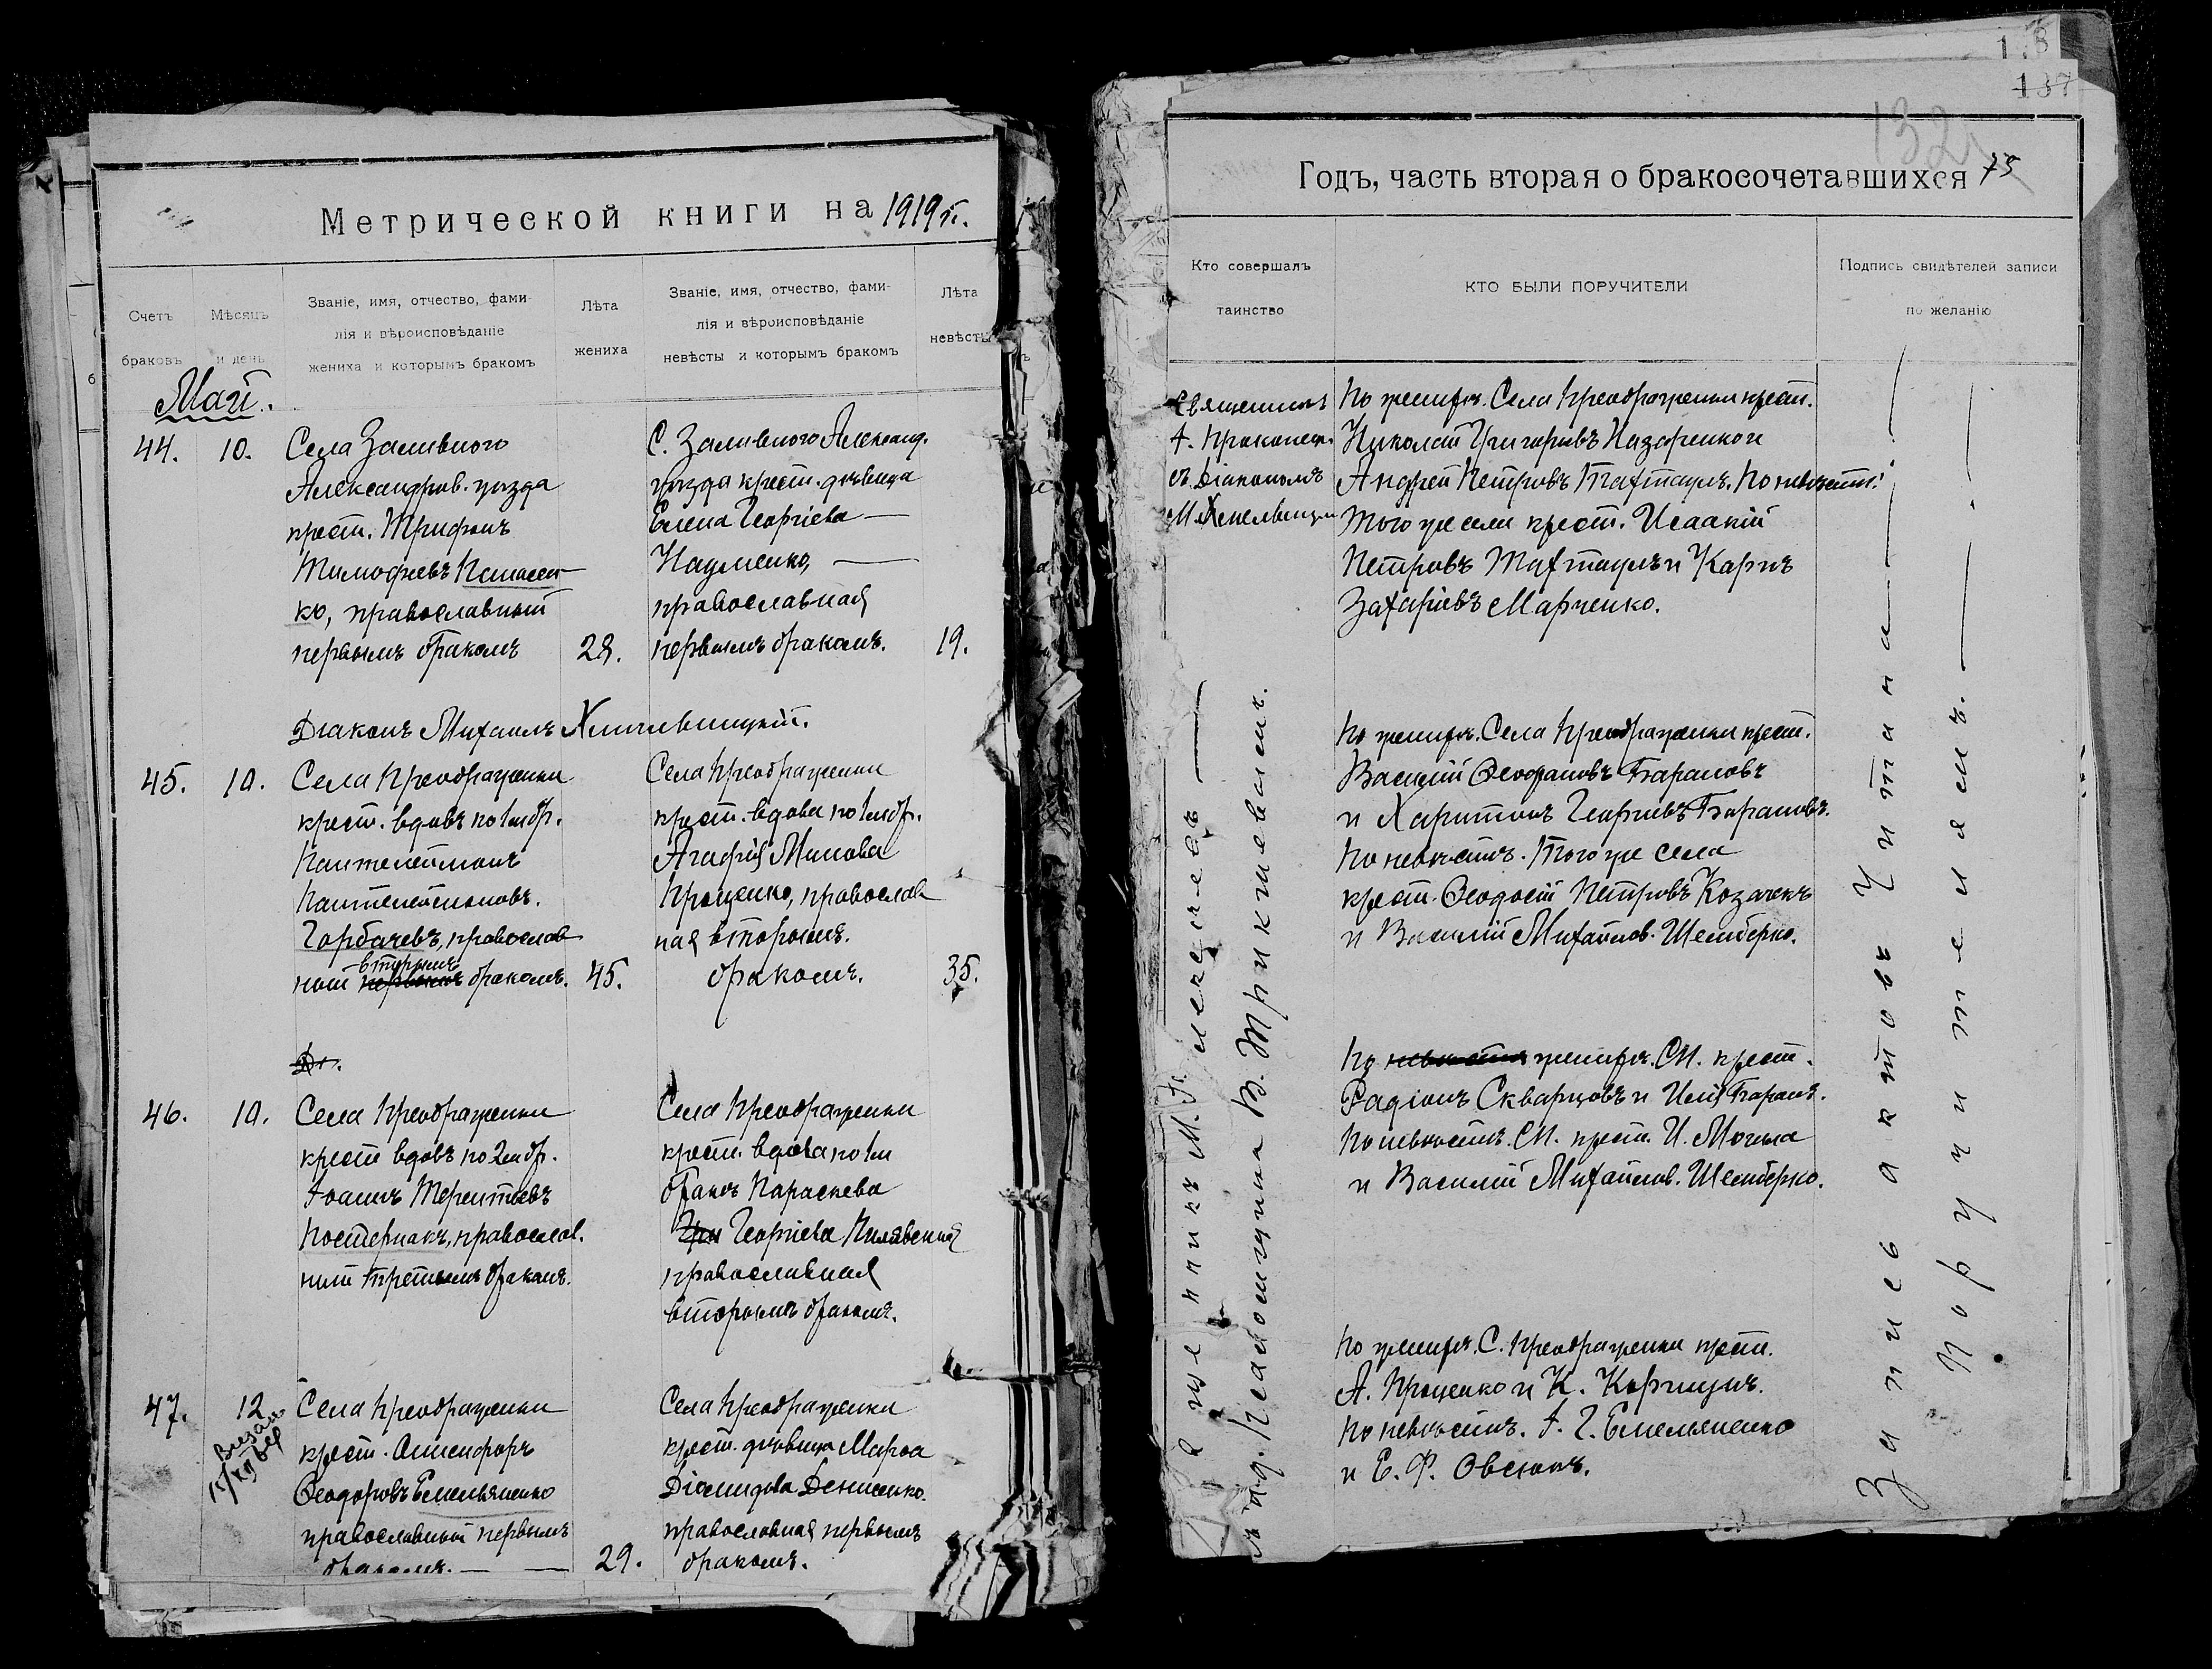 Метрической книги на 1919 г.
Счетъ браковъ
Мѣсяцъ и день
Званіе, имя, отчество, фами-
лія и вѣроисповѣданіе
жениха и которымъ бракомъ
Лѣта
жениха
Званіе, имя, отчество, фами-
лія и вѣроисповѣданіе
невѣсты и которымъ бракомъ
Лѣта
невѣсты
Май.
44. 10.
Села Заливного
Александров. уѣзда
крест. Трифонъ
Тимофеевъ Панасен-
ко, православный
первымъ бракомъ
28.
С. Заливного Александ.
уѣзда крест. дѣвица
Елена Георгіева
Науменко,
православная
первымъ бракомъ.
19.
Діаконъ Михаилъ
45. 10.
Села Преображенки
крест. вдовъ по 1м бр.
Пантелеймонъ
Пантелеймоновъ.
Горбачевъ, православ
ный первымъ вторымъ бракомъ.
45.
Села Преображенки
крест. вдова по 1м бр.
Агафія Минова
Проценко, православ
ная вторымъ.
бракомъ.
35.
Ді.
46. 10.
Села Преображенки
крест вдовъ по 2м бр.
Іоаннъ Терентіевъ
Постернакъ, православ.
ный третьимъ бракомъ.
Села Преображенки
крест. вдова по 1м
бракѣ Параскева
Гри Георгіева
православная
вторымъ бракомъ.
47. 12
Села Преображенки
крест. Онисифоръ
Ѳеодоровъ Емельяненко
православный первымъ
бракомъ.
29.
Села Преображенки
крест. дѣвица Марѳа
Діомидова Денисенко.
православная первымъ
бракомъ.
137
132
75
Годъ, часть вторая о бракосочетавшихся
Кто совершалъ
таинство
КТО БЫЛИ ПОРУЧИТЕЛИ
Подпись свидѣтелей записи
по желанію
Священникъ
съ Діакономъ
По женихѣ. Села Преображенки крест.
Николай Григорьевъ Назаренко и
Андрей Петровъ Тахтаулъ. По невѣстѣ:
Того же села крест. Исаакій
Петровъ Тахтаулъ и Карпъ
Захаріевъ Марченко.
По женихѣ. Села Преображенки крест.
Василій Ѳеофановъ Барановъ
и Харитонъ Георгіевъ Барановъ.
По невѣстѣ. Того же села
крест. Ѳеодосій Петровъ Козачекъ
и Василій Михайлов. Шемберко.
По невѣстѣ женихѣ. СП. крест.
Радіонъ Скварцовъ и Илія Баранъ.
По невѣстѣ. СП. крест. И. Могила
и Василій Михайлов. Шемберко.
По женихѣ. С. Преображенки крест.
А. Проценко и К. Корицунъ.
По невѣстѣ. І. Г. Емельяненко
и Е. Ф. Овсюкъ.
Запись актовъ читана
Поручителямъ.